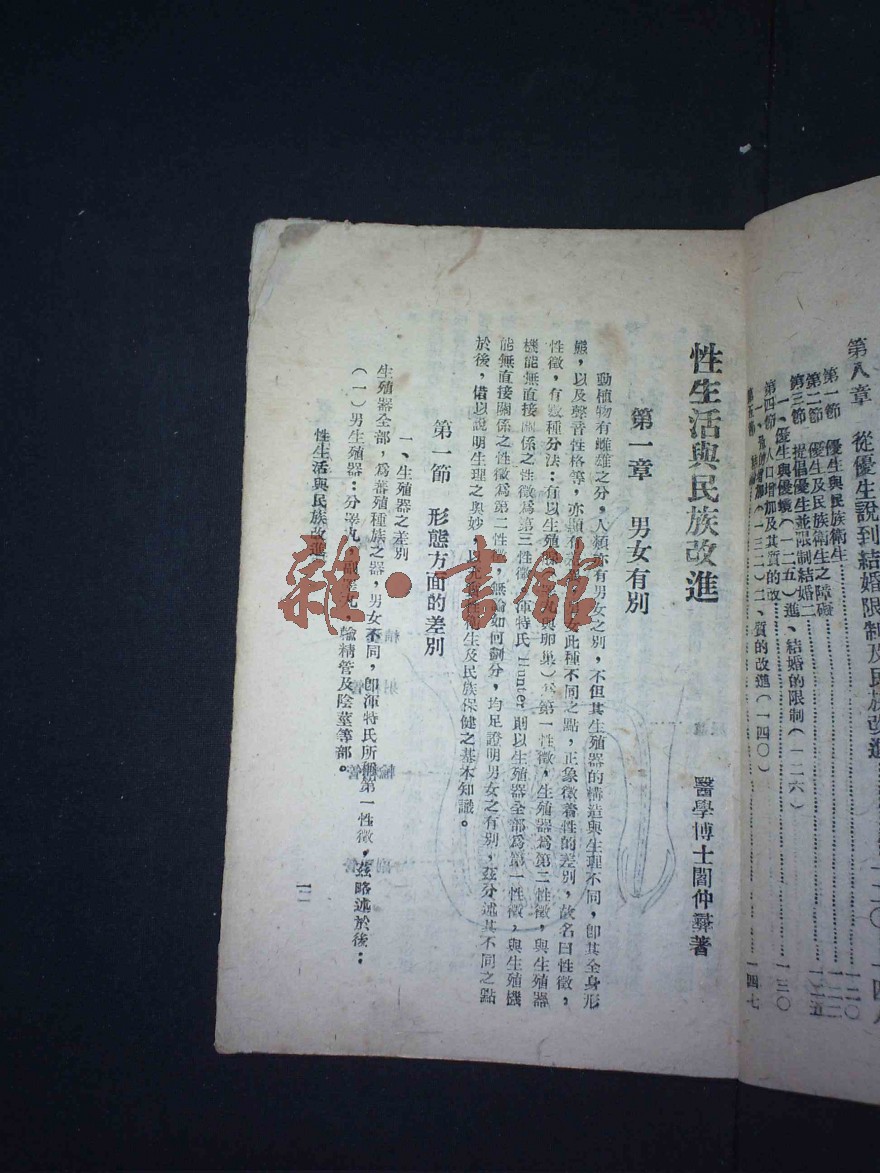 第八章 從優生說到結婚限制及民族改進
第一節 優生與民族衛生 一二〇
第二節 優生及民族衛生之障礙
第三節 提倡優生並限制結婚
一、優生與優境(一二五) 二、結婚的限制(一二六)
第四節 人口增加及其質的改進 一三〇
二、質的改進(一四〇)
一四七
性生活與民族改進
醫學博士閻仲彝著
第一章 男女有別
動植物有雌雄之分,人類亦有男女之別,不但其生殖器的構造與生理不同,卽其全身形
貌,以及聲音性格等,亦顯有 此種不同之點,正象徵着性的差別,故名曰性徵,
性徵,有數種分法:有以生殖 與卵巢)爲第一性徵,生殖器爲第二性徵,與生殖器
機能無直接關係之性徵爲第三性徵,渾特氏 Hunter 則以生殖器全部爲第一性徵,與生殖機
能無直接關係之性徵爲第二性徵,無論如何劃分,均足證明男女之有別,茲分述其不同之點
於後,借以說明生理之奧妙,以 衛生及民族保健之基本知識。
第一節 形態方面的差別
一、生殖器之差別
生殖器全部,爲蕃殖種族之器,男女不同,卽渾特氏所稱第一性徵,茲略述於後:
(一)男生殖器:分睪丸,副睪丸,輸精管及陰莖等部。
性生活與民族改進
一
雜·書館